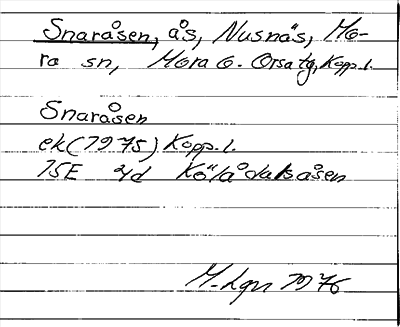 Snaråsen, ås, Nusnäs, Mo-
ra sn, Mora o. Orsa tg, Kopp. l.
Snaråsen
ek (7975) Kopp. l.
15E
M-Lgn 1976